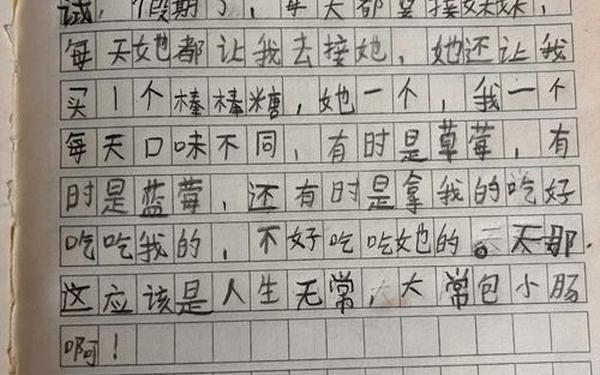 试，假期了，每天都要接妹妹，
每天她都让我去接她，她还让我
买1个棒棒糖，她一个，我一个
每天口味不同，有时是草莓，有
时是蓝莓，还有时是拿我的吃好
吃吃我的，不好吃吃她的。天那.
这应该是人生无常，大常包小肠
啊！